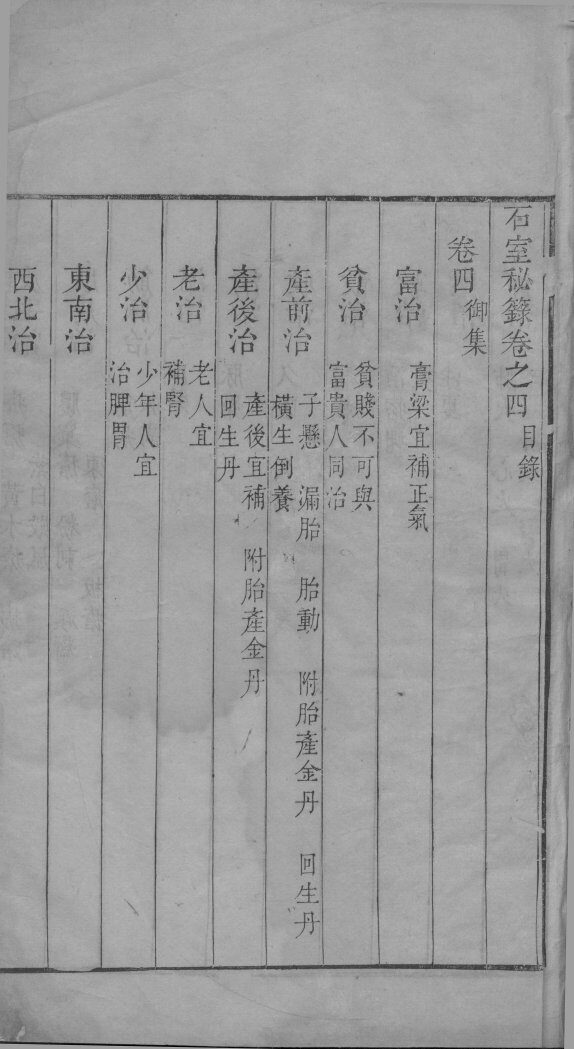 石室秘籙卷之四目錄
卷四御集
富治　膏粱宜補正氣
貧治　貧賤不可與富貴人同治
產前治　子懸　漏胎　胎動　附胎產金丹　回生丹　橫生倒養
產後治　產後宜補　附胎產金丹　回生丹
老治　老人宜補腎
少治　少年人宜治脾胃
東南治
西北治